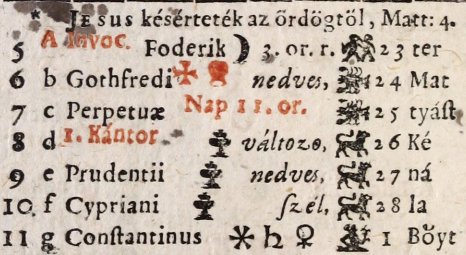 * JEsus késérteték az ördögtöl, Matt: 4.
5 A Invoc. Foderik ☽ 3. or. r. 23 ter
6 b Gothfredi nedves, 24 Mat
7 c Perpetuæ Nap 11. or. 25 tyáſt
8 d 1. Kántor változo, 26 Ké
9 e Prudentii nedves, 27 ná
10. f Cypriani ſzél, 28 la
11 g Conſtantinus ⚹ ♄ ♀ 1 Böyt